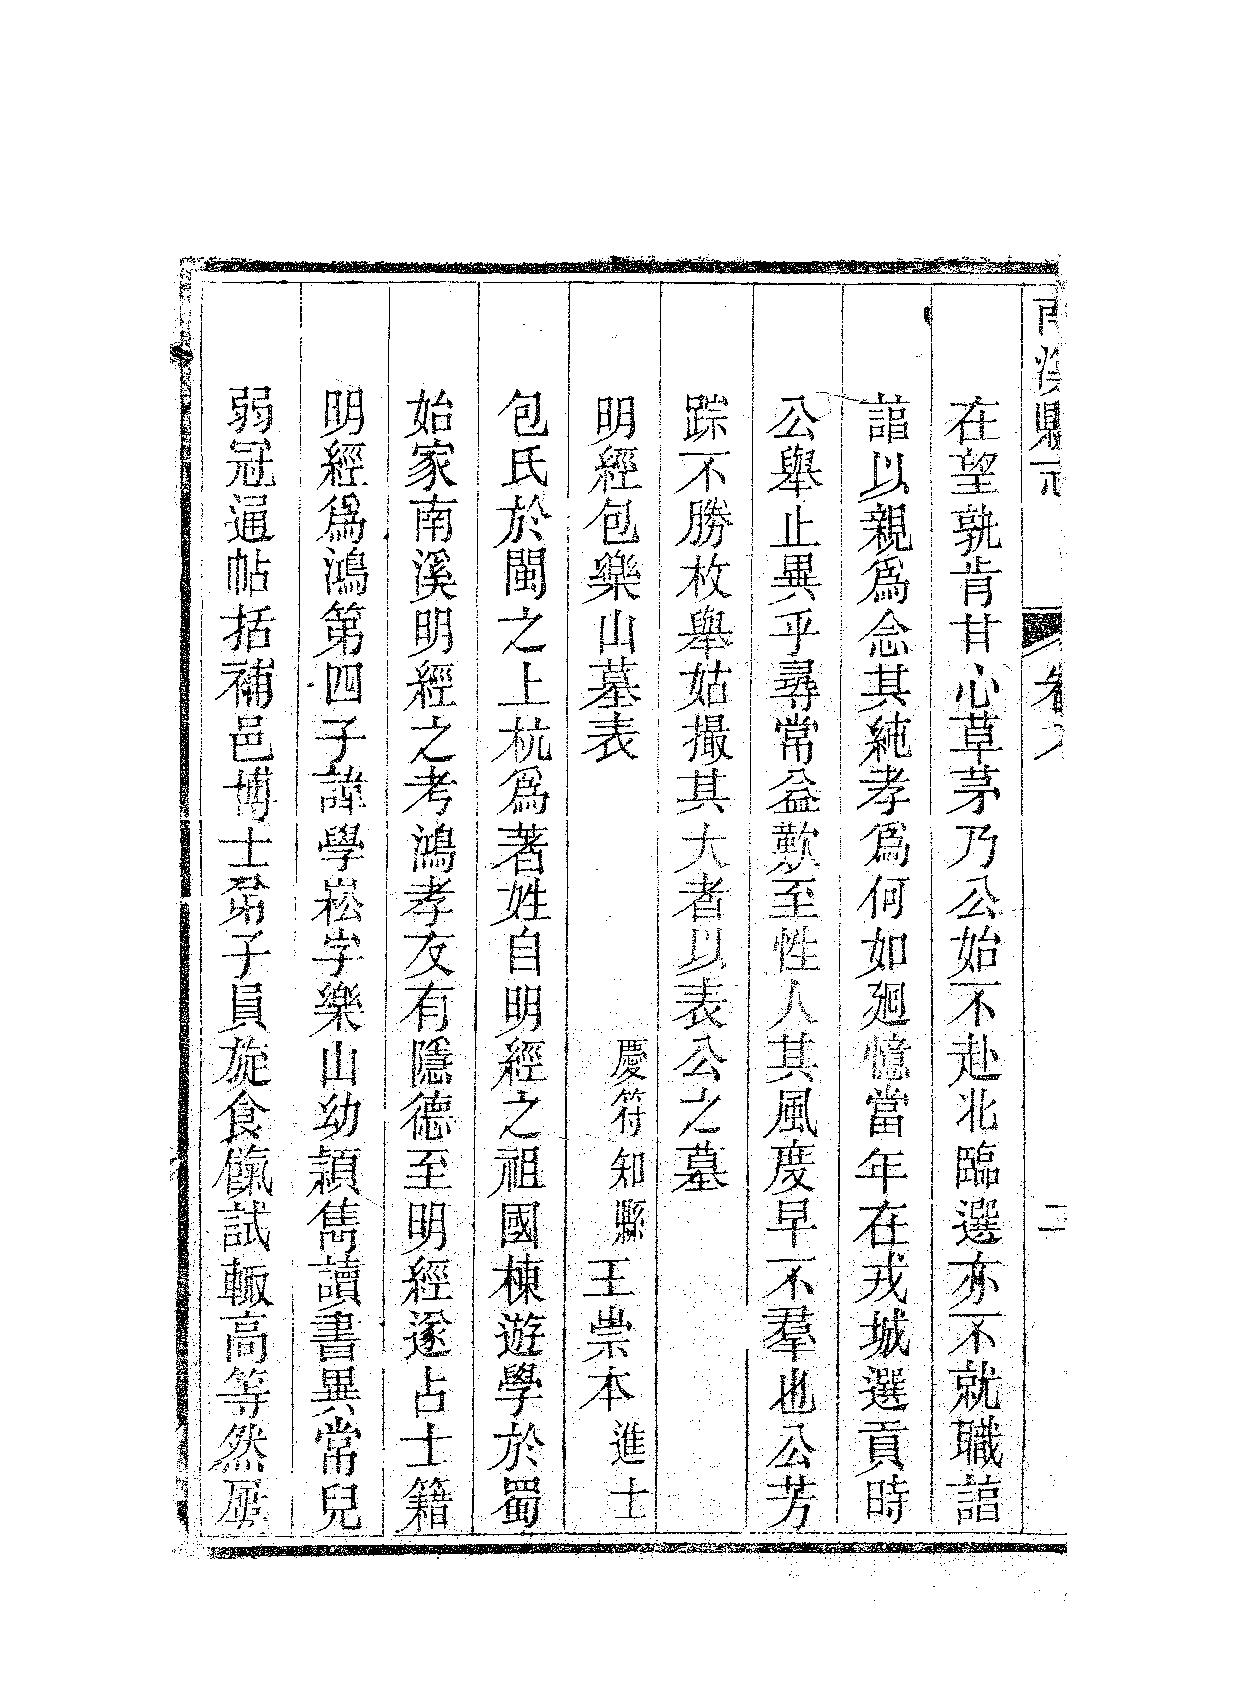 南溪縣志 卷 二
在望孰肯甘心草茅乃公始不赴北臨選亦不就職諠
諠以親爲念其純孝爲何如廻憶當年在戎城選貢時
公舉止異乎尋常益歎至性人其風度早不羣也公芳
踪不勝枚舉姑撮其大者以表公之墓
明經包樂山墓表 慶符知縣王崇本進士
包氏於閩之上杭爲著姓自明經之祖國棟遊學於蜀
始家南溪明經之考鴻孝友有隱德至明經遂占士籍
明經爲鴻第四子諱學崧字樂山幼穎雋讀書異常兒
弱冠通帖括補邑博士弟子員旋食餼試輙高等然屢